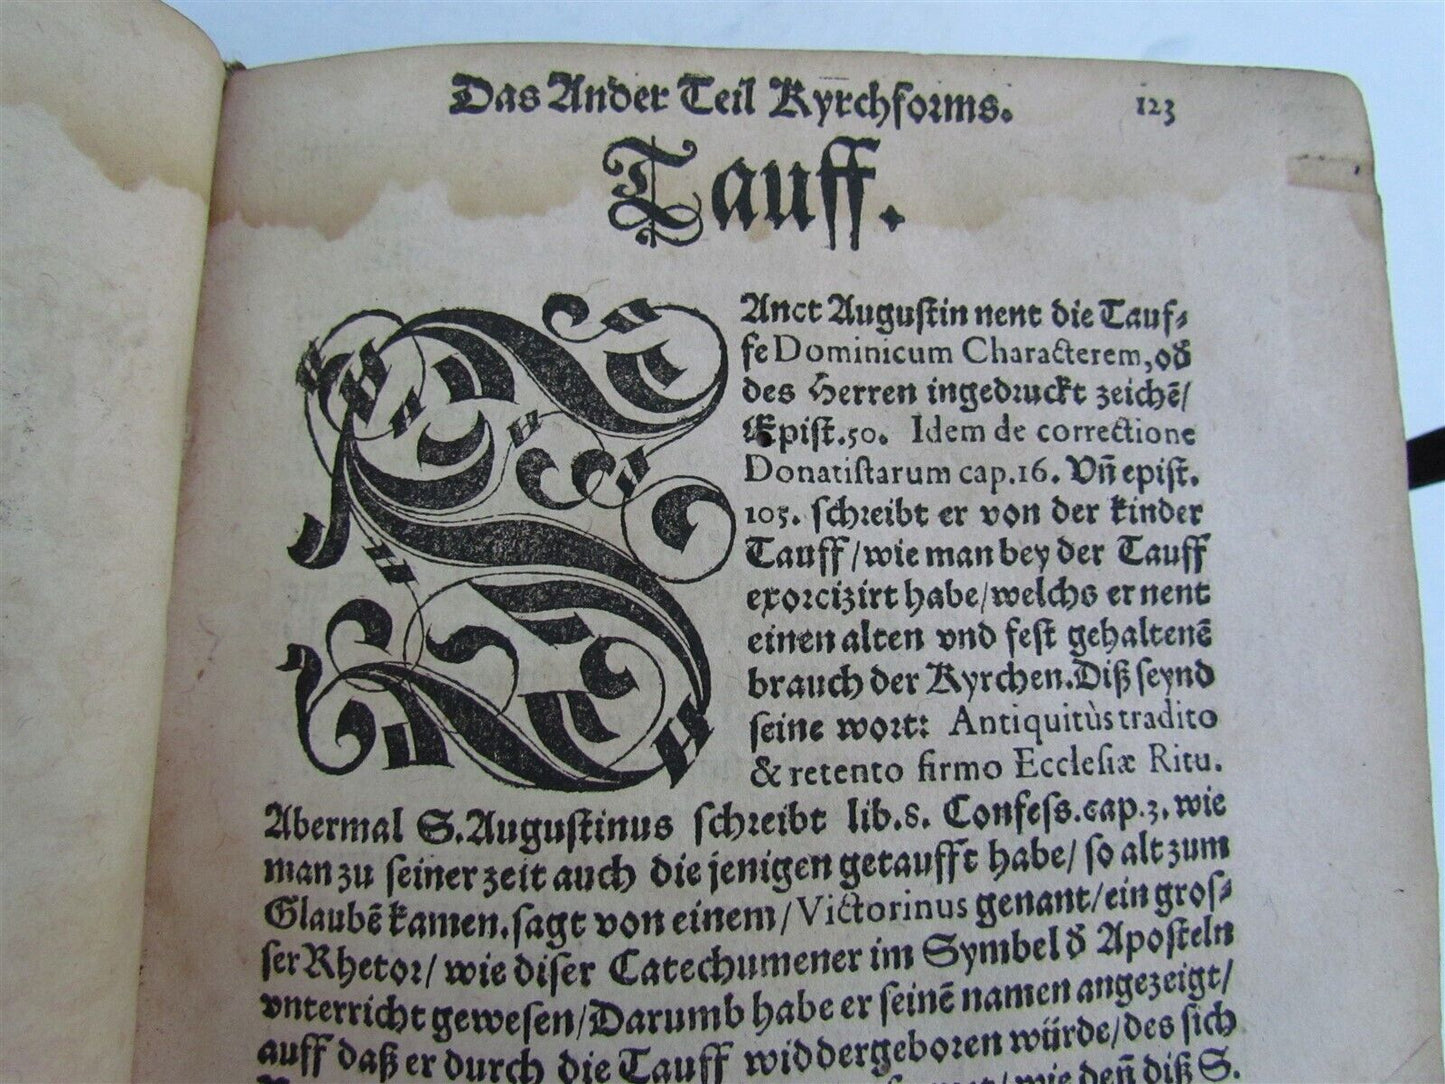 Das Ander Teil Kyrchforms. 123
Tauff.
SAnct Augustin nent die Tauf⸗
fe Dominicum Characterem, od̃
des Herren ingedruckt zeichẽ/
Epist.50. Idem de correctione
Donatistarum cap.16. Vñ epist.
105. schreibt er von der kinder
Tauff/wie man bey der Tauff
exorcizirt habe/welchs er nent
einen alten vnd fest gehaltenẽ
brauch der Kyrchen.Diß seynd
seine wort: Antiquitùs tradito
& retento firmo Ecclesiæ Ritu.
Abermal S.Augustinus schreibt lib.8. Confess.cap.3.wie
man zu seiner zeit auch die jenigen getaufft habe/ so alt zum
Glaubẽ kamen.sagt von einem/Victorinus genant/ein gros⸗
ser Rhetor/ wie diser Catechumener im Symbel d̃ Aposteln
vnterricht gewesen/Darumb habe er seinẽ namen angezeigt/
auff daß er durch die Tauff widdergeboren würde/des sich
wie deñ diß S.